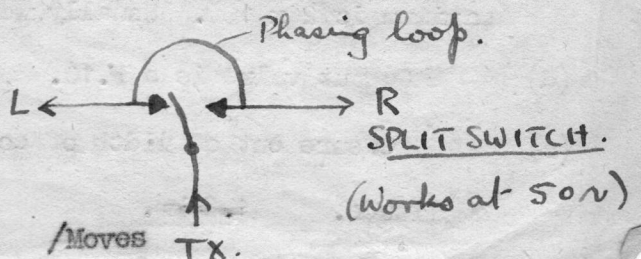 Phasing loop.
L R
SPLIT SWITCH.
(Works at 50~)
/Moves TX.